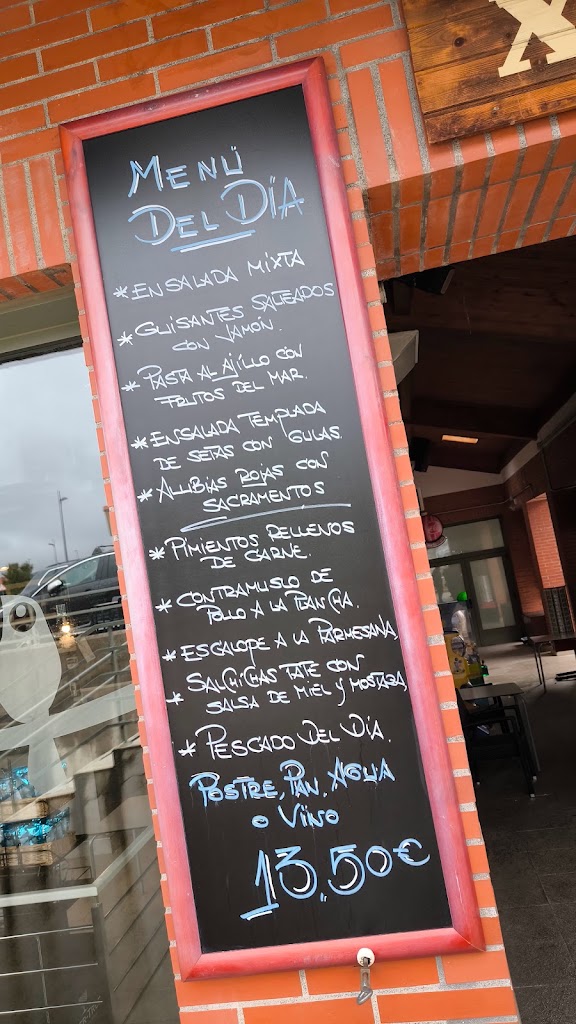 MENÚ
DEL DÍA
* ENSALADA MIXTA
* GUISANTES SALTEADOS
CON JAMÓN.
* PASTA AL AJILLO CON
FRUTOS DEL MAR.
* ENSALADA TEMPLADA
DE SETAS CON GULAS.
* ALUBIAS ROJAS CON
SACRAMENTOS
* PIMIENTOS RELLENOS
DE CARNE.
* CONTRAMUSLO DE
POLLO A LA PLANCHA.
* ESCALOPE A LA PARMESANA,
* SALCHICHAS TATE CON
SALSA DE MIEL Y MOSTAZA,
* PESCADO DEL DÍA.
POSTRE, PAN, AGUA
O VINO
13,50€
X